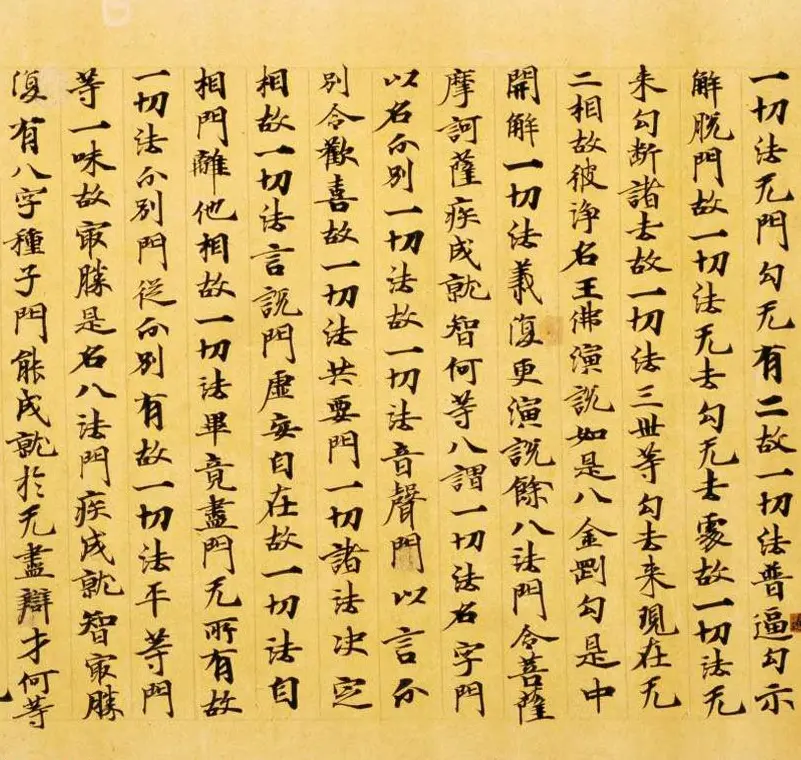 一切法无門勾无有二故一切法普逼勾示
解脱門故一切法无去勾无去處故一切法无
来勾断諸去故一切法三世等勾去来現在无
二相故彼浄名王佛演說如是八金罡勾是中
開解一切法義復更演說餘八法門令菩薩
摩訶薩疾成就智何等八謂一切法名字門
以名分别一切法故一切法音聲門以言分
别令歡喜故一切法共要門一切諸法决定
相故一切法言說門虚妄自在故一切法自
相門離他相故一切法畢竟盡門无所有故
一切法分别門從分别有故一切法平等門
等一味故㝡勝是名八法門疾成就智㝡勝
復有八字種子門能成就於无盡辯才何等